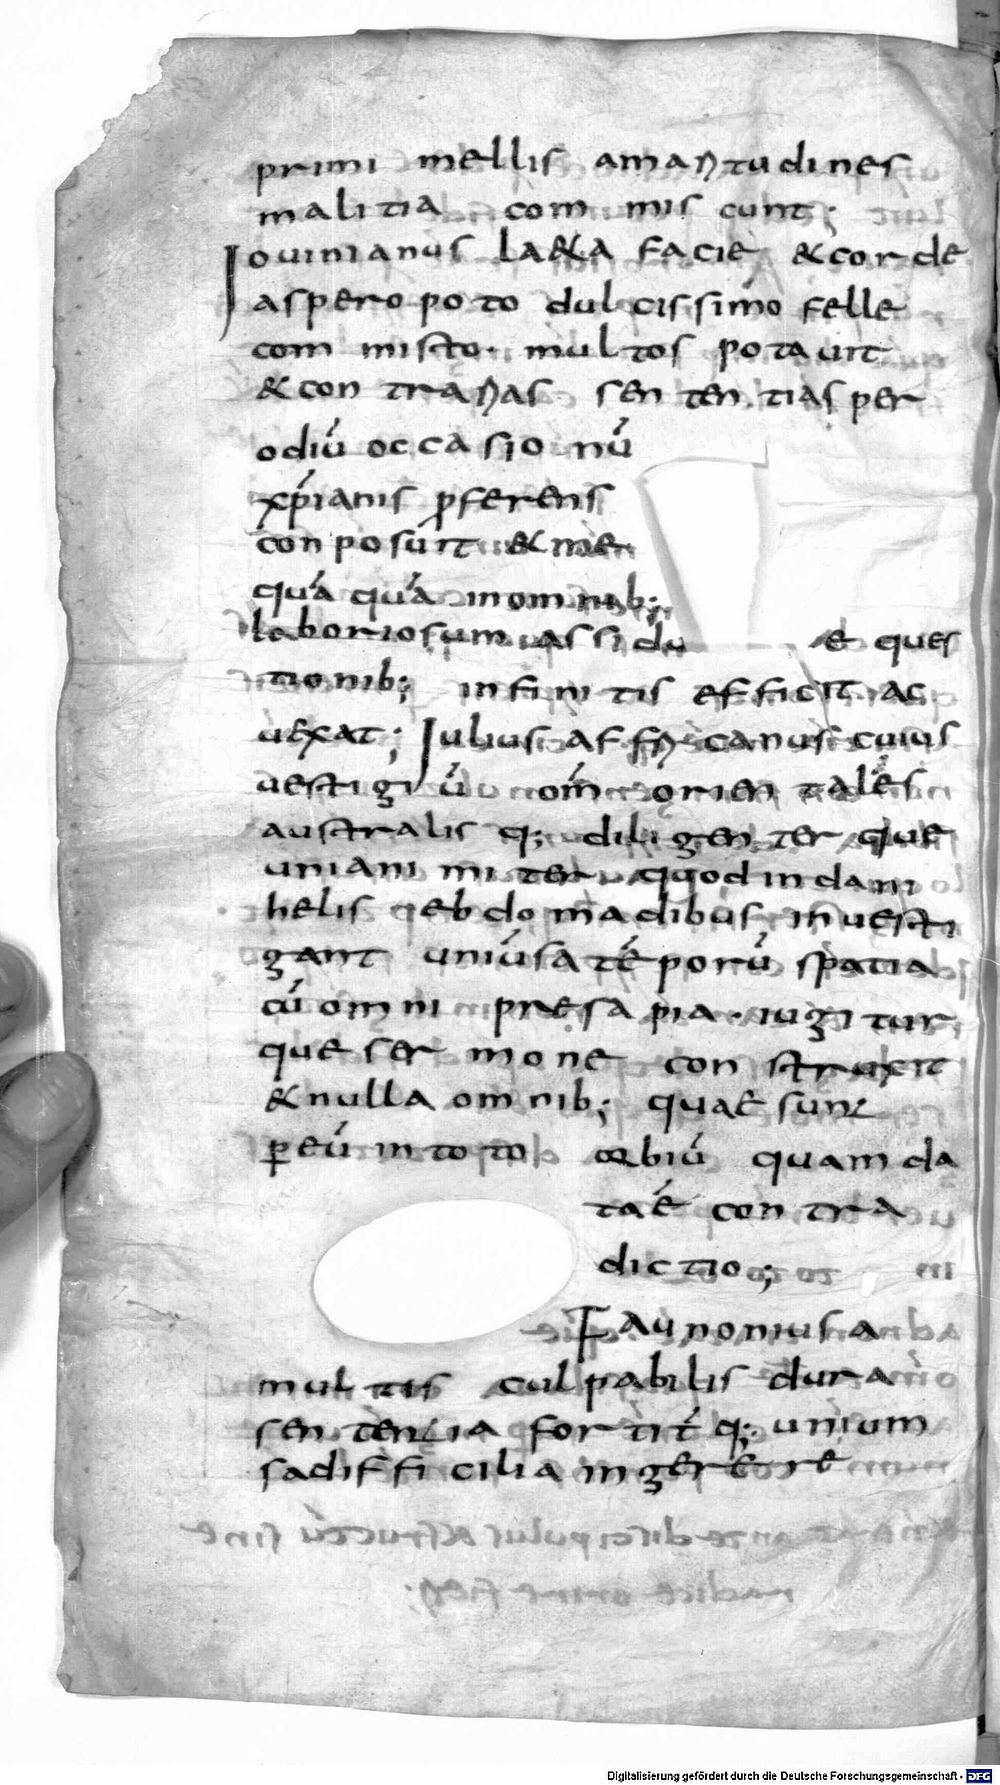 primi mellis amaritudines
malitia com mis cunt;
Iouinianus laeta facie & corde
aspero poto dulcissimo felle
com misto· multos potauit
& con trarias sen ten tias per
odiū occasionū
xp̄ianis p̲ferens
con posuit & me
quā quā in omnib;
laboriosum assidu e ques
tionib; in fini tis efficit ac
uexat; Iulius affricanus cuius
uestigiū om̄ orien tales
australis q; diligen ter que
uniani mi ter quod in dani
helis ebdomadibus inuesti
gant uniūsa tēporū spatia
cū omni presa pia· iugi tur
que ser mone con struxit
& nulla omnib; quae sunt
ꝑ eū in toto orbiū quam da
taē con tra
dictio;
Faunonius a
mul tis culpabilis dura
sen tentia for tit̄ q; unium
sa difficilia in gerere
Digitalisierung gefördert durch die Deutsche Forschungsgemeinschaft - DFG